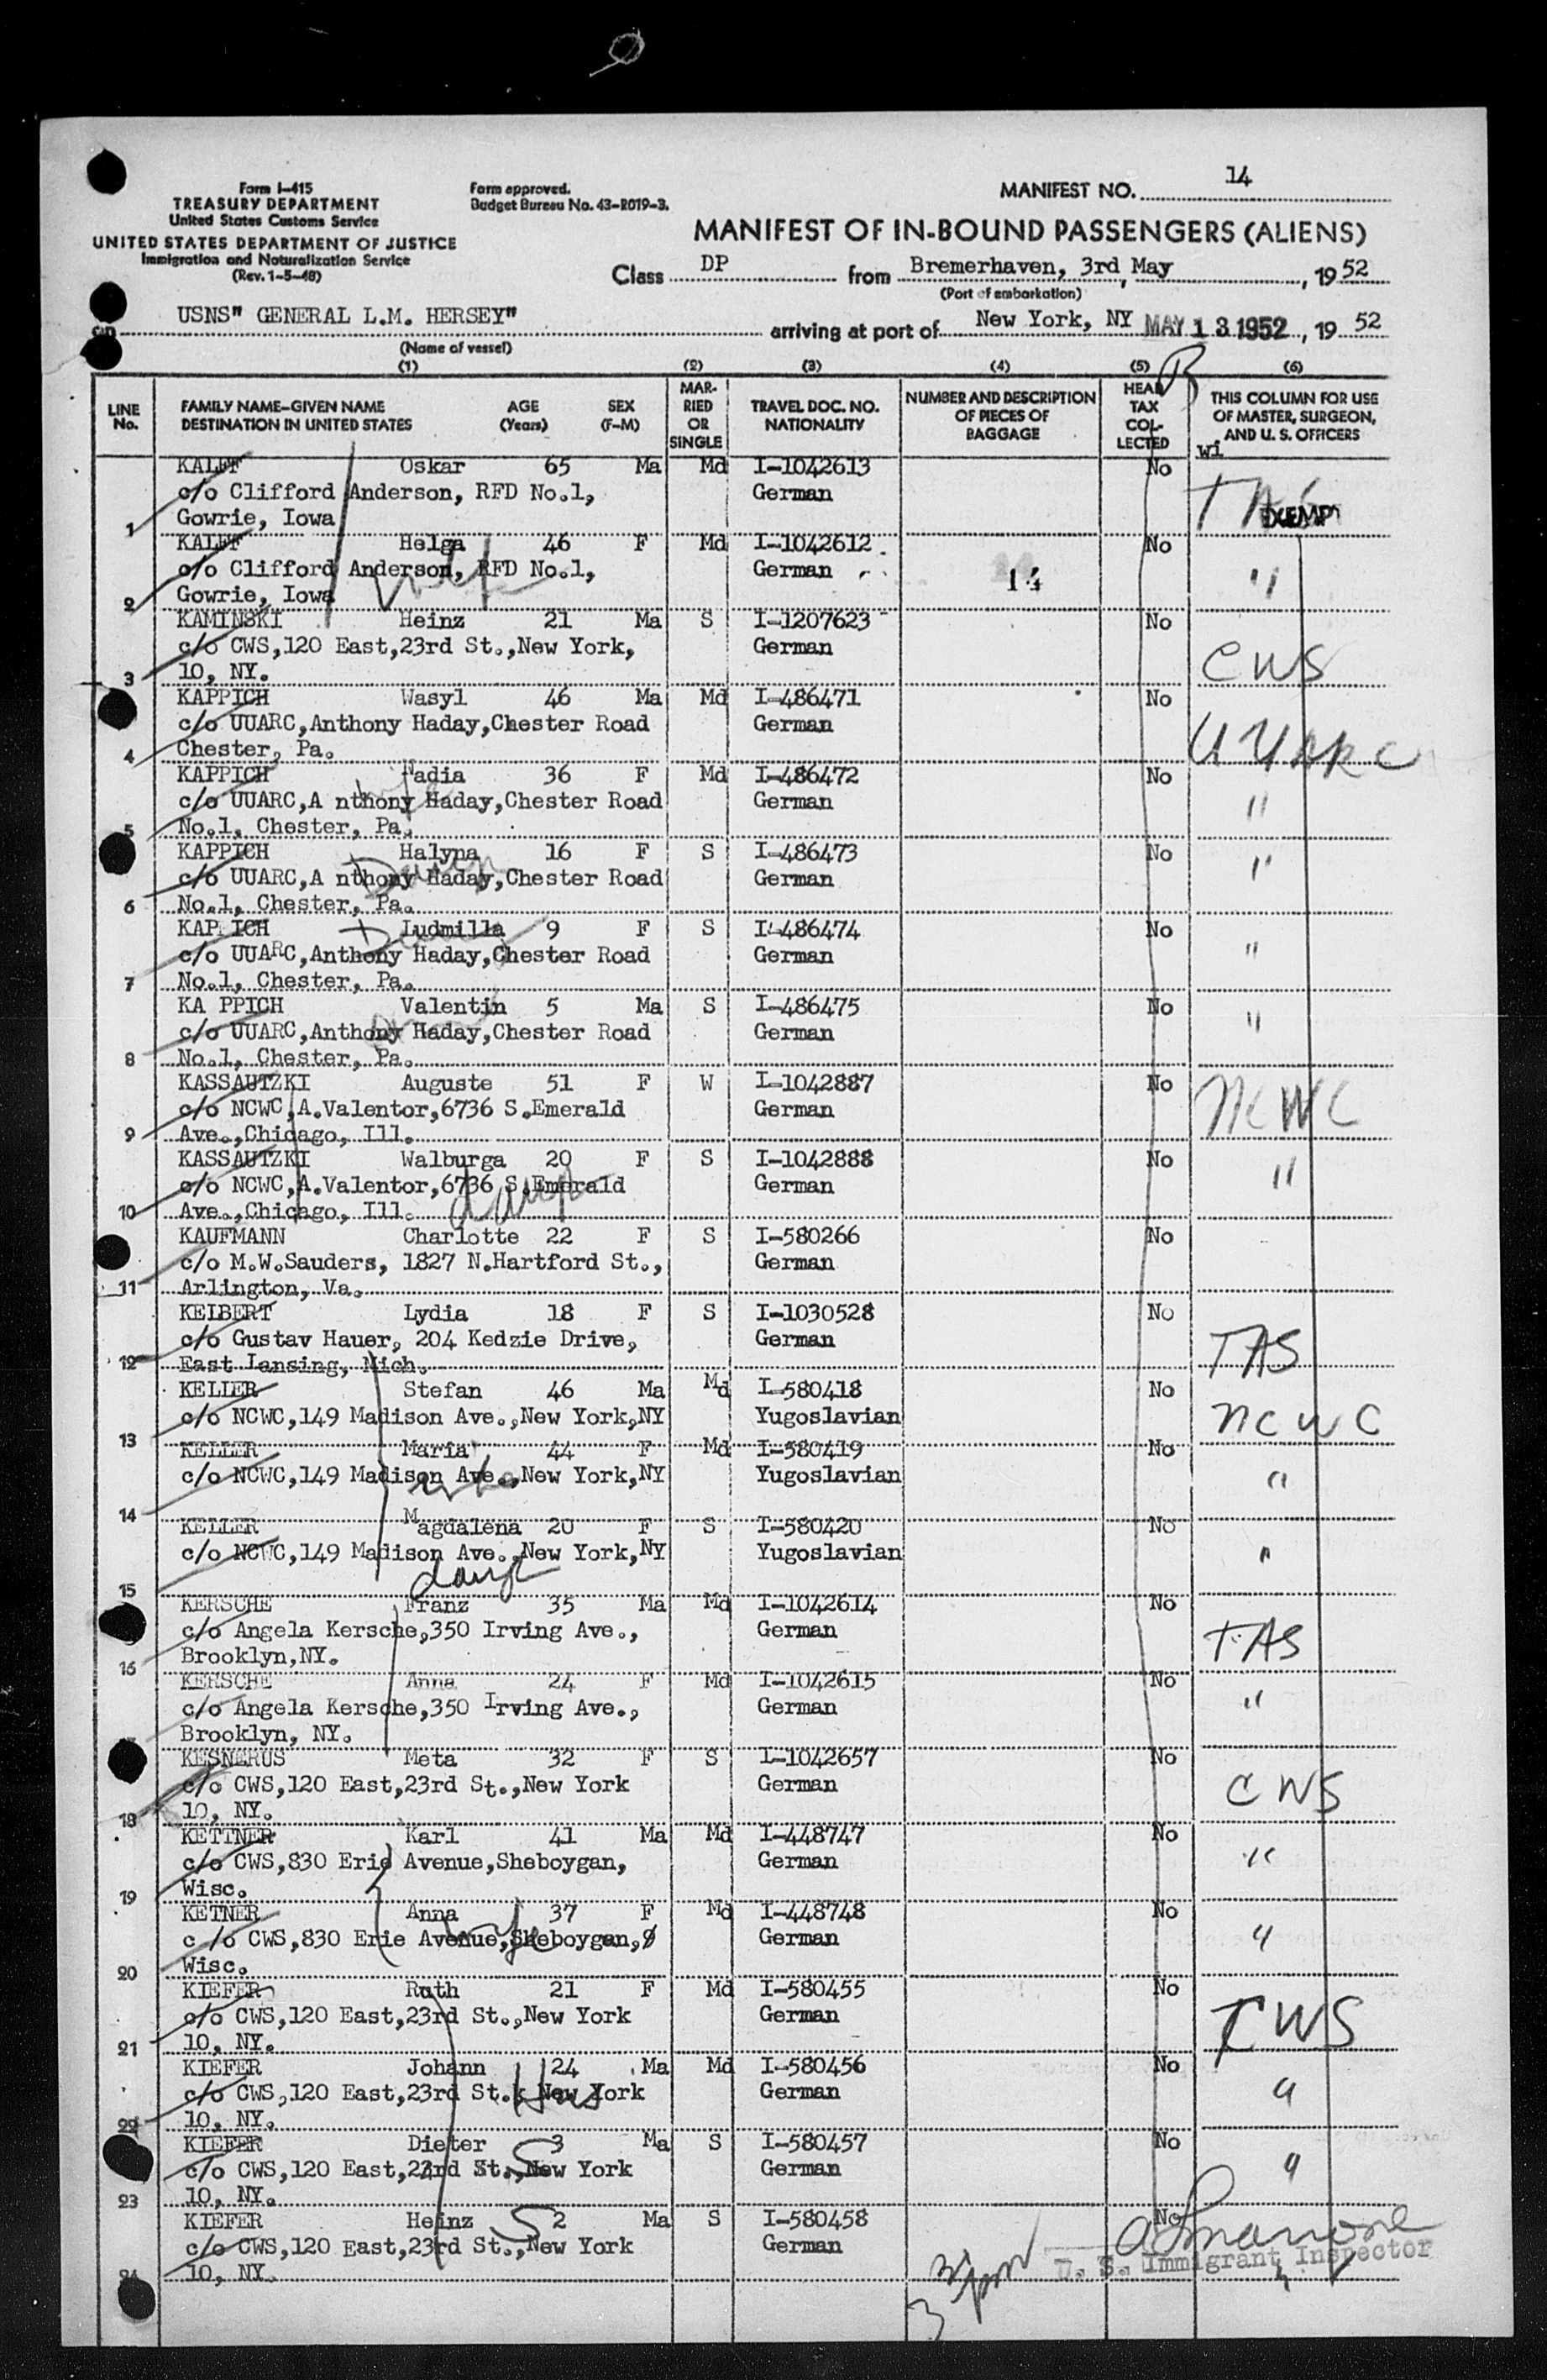 14
Form I-415
TREASURY DEPARTMENT
United States Customs Service
UNITED STATES DEPARTMENT OF JUSTICE
Immigration and Naturalization Service
(Rev. 1-5-48)
Form approved.
Budget Bureau No. 43-R019-3.
MANIFEST NO.
MANIFEST OF IN-BOUND PASSENGERS (ALIENS)
Class DP from Bremerhaven, 3rd May, 1952
(Port of embarkation)
on USNS" GENERAL L.M. HERSEY" arriving at port of New York, NY MAY 13 1952, 19 52
(Name of vessel)
(1) (2) (3) (4) (5) (6)
LINE No.
FAMILY NAME-GIVEN NAME AGE SEX
DESTINATION IN UNITED STATES (Years) (F-M)
MAR-RIED OR SINGLE
TRAVEL DOC. NO. NATIONALITY
NUMBER AND DESCRIPTION OF PIECES OF BAGGAGE
HEAD TAX COL-LECTED
THIS COLUMN FOR USE OF MASTER, SURGEON, AND U. S. OFFICERS
wi
KALFF Oskar 65 Ma Md I-1042613 No
c/o Clifford Anderson, RFD No.1, German TAS
1 Gowrie, Iowa EXEMP
KALFF Helga 46 F Md I-1042612 No
c/o Clifford Anderson, RFD No.1, German 14 "
2 Gowrie, Iowa wife
KAMINSKI Heinz 21 Ma S I-1207623 No
c/o CWS,120 East,23rd St.,New York, German CWS
3 10, NY.
KAPPICH Wasyl 46 Ma Md I-486471 No
c/o UUARC,Anthony Haday,Chester Road German UUARC
4 Chester, Pa.
KAPPICH Nadia 36 F Md I-486472 No
c/o UUARC,A nthony Haday,Chester Road German "
5 No.1, Chester, Pa. wife
KAPPICH Halyna 16 F S I-486473 No
c/o UUARC,A nthony Haday,Chester Road German "
6 No.1, Chester, Pa.
KAP ICH Ludmilla 9 F S I-486474 No
c/o UUARC,Anthony Haday,Chester Road German "
7 No.1, Chester, Pa.
KA PPICH Valentin 5 Ma S I-486475 No
c/o UUARC,Anthony Haday,Chester Road German "
8 No.1, Chester, Pa.
KASSAUTZKI Auguste 51 F W I-1042887 No
c/o NCWC,A.Valentor,6736 S.Emerald German NCWC
9 Ave.,Chicago, Ill.
KASSAUTZKI Walburga 20 F S I-1042888 No
c/o NCWC,A.Valentor,6736 S.Emerald German "
10 Ave.,Chicago, Ill. daug
KAUFMANN Charlotte 22 F S I-580266 No
c/o M.W.Sauders, 1827 N.Hartford St., German
11 Arlington, Va.
KEIBERT Lydia 18 F S I-1030528 No
c/o Gustav Hauer, 204 Kedzie Drive, German TAS
12 East Lansing, Mich.
KELLER Stefan 46 Ma Md I-580418 No
c/o NCWC,149 Madison Ave.,New York,NY Yugoslavian NCWC
13
KELLER Maria 44 F Md I-580419 No
c/o NCWC,149 Madison Ave.,New York,NY Yugoslavian "
14 wife
KELLER Magdalena 20 F S I-580420 No
c/o NCWC,149 Madison Ave.,New York,NY Yugoslavian "
15 daug
KERSCHE Franz 35 Ma Md I-1042614 No
c/o Angela Kersche,350 Irving Ave., German TAS
16 Brooklyn,NY.
KERSCHE Anna 24 F Md I-1042615 No
c/o Angela Kersche,350 Irving Ave., German "
Brooklyn, NY.
KESNERUS Meta 32 F S I-1042657 No
c/o CWS,120 East,23rd St.,New York German CWS
18 10, NY.
KETTNER Karl 41 Ma Md I-448747 No
c/o CWS,830 Erie Avenue,Sheboygan, German "
19 Wisc.
KETNER Anna 37 F Md I-448748 No
c /o CWS,830 Erie Avenue,Sheboygan, German "
20 Wisc. wife
KIEFER Ruth 21 F Md I-580455 No
c/o CWS,120 East,23rd St.,New York German CWS
21 10, NY.
KIEFER Johann 24 Ma Md I-580456 No
c/o CWS,120 East,23rd St. New York German "
22 10, NY. Hus
KIEFER Dieter 3 Ma S I-580457 No
c/o CWS,120 East,23rd St.,New York German "
23 10, NY. S
KIEFER Heinz 2 Ma S I-580458 No
c/o CWS,120 East,23rd St.,New York German
24 10, NY. S
U. S. Immigrant Inspector